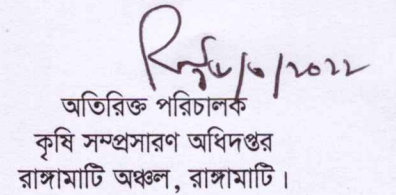 অতিরিক্ত পরিচালক
কৃষি সম্প্রসারণ অধিদপ্তর
রাঙ্গামাটি অঞ্চল, রাঙ্গামাটি।